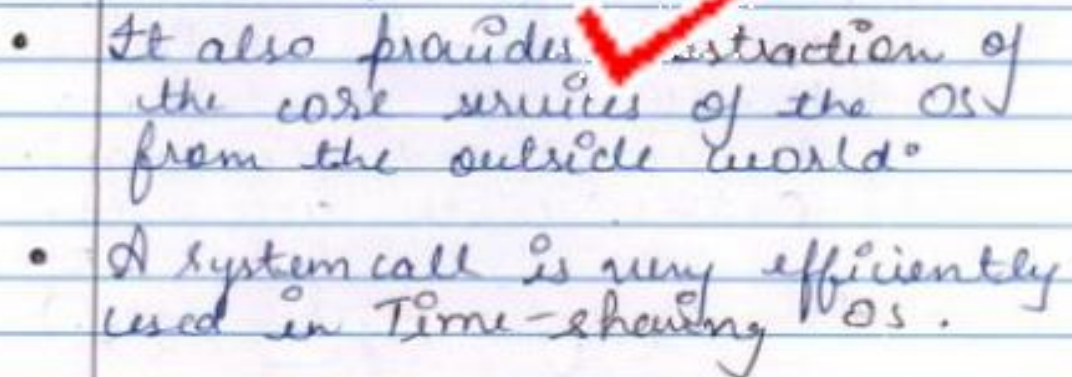 • It also provides straction of
the core services of the OS
from the outside world.
• A system call is very efficiently
used in Time-sharing OS.